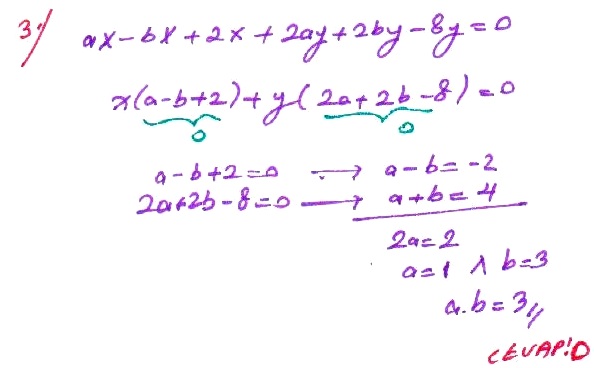 3) ax-bx+2x+2ay+2by-8y=0
x(a-b+2)+y(2a+2b-8)=0
0 0
a-b+2=0 → a-b=-2
2a+2b-8=0 → a+b=4
2a=2
a=1 ∧ b=3
a.b=3//
CEVAP:D